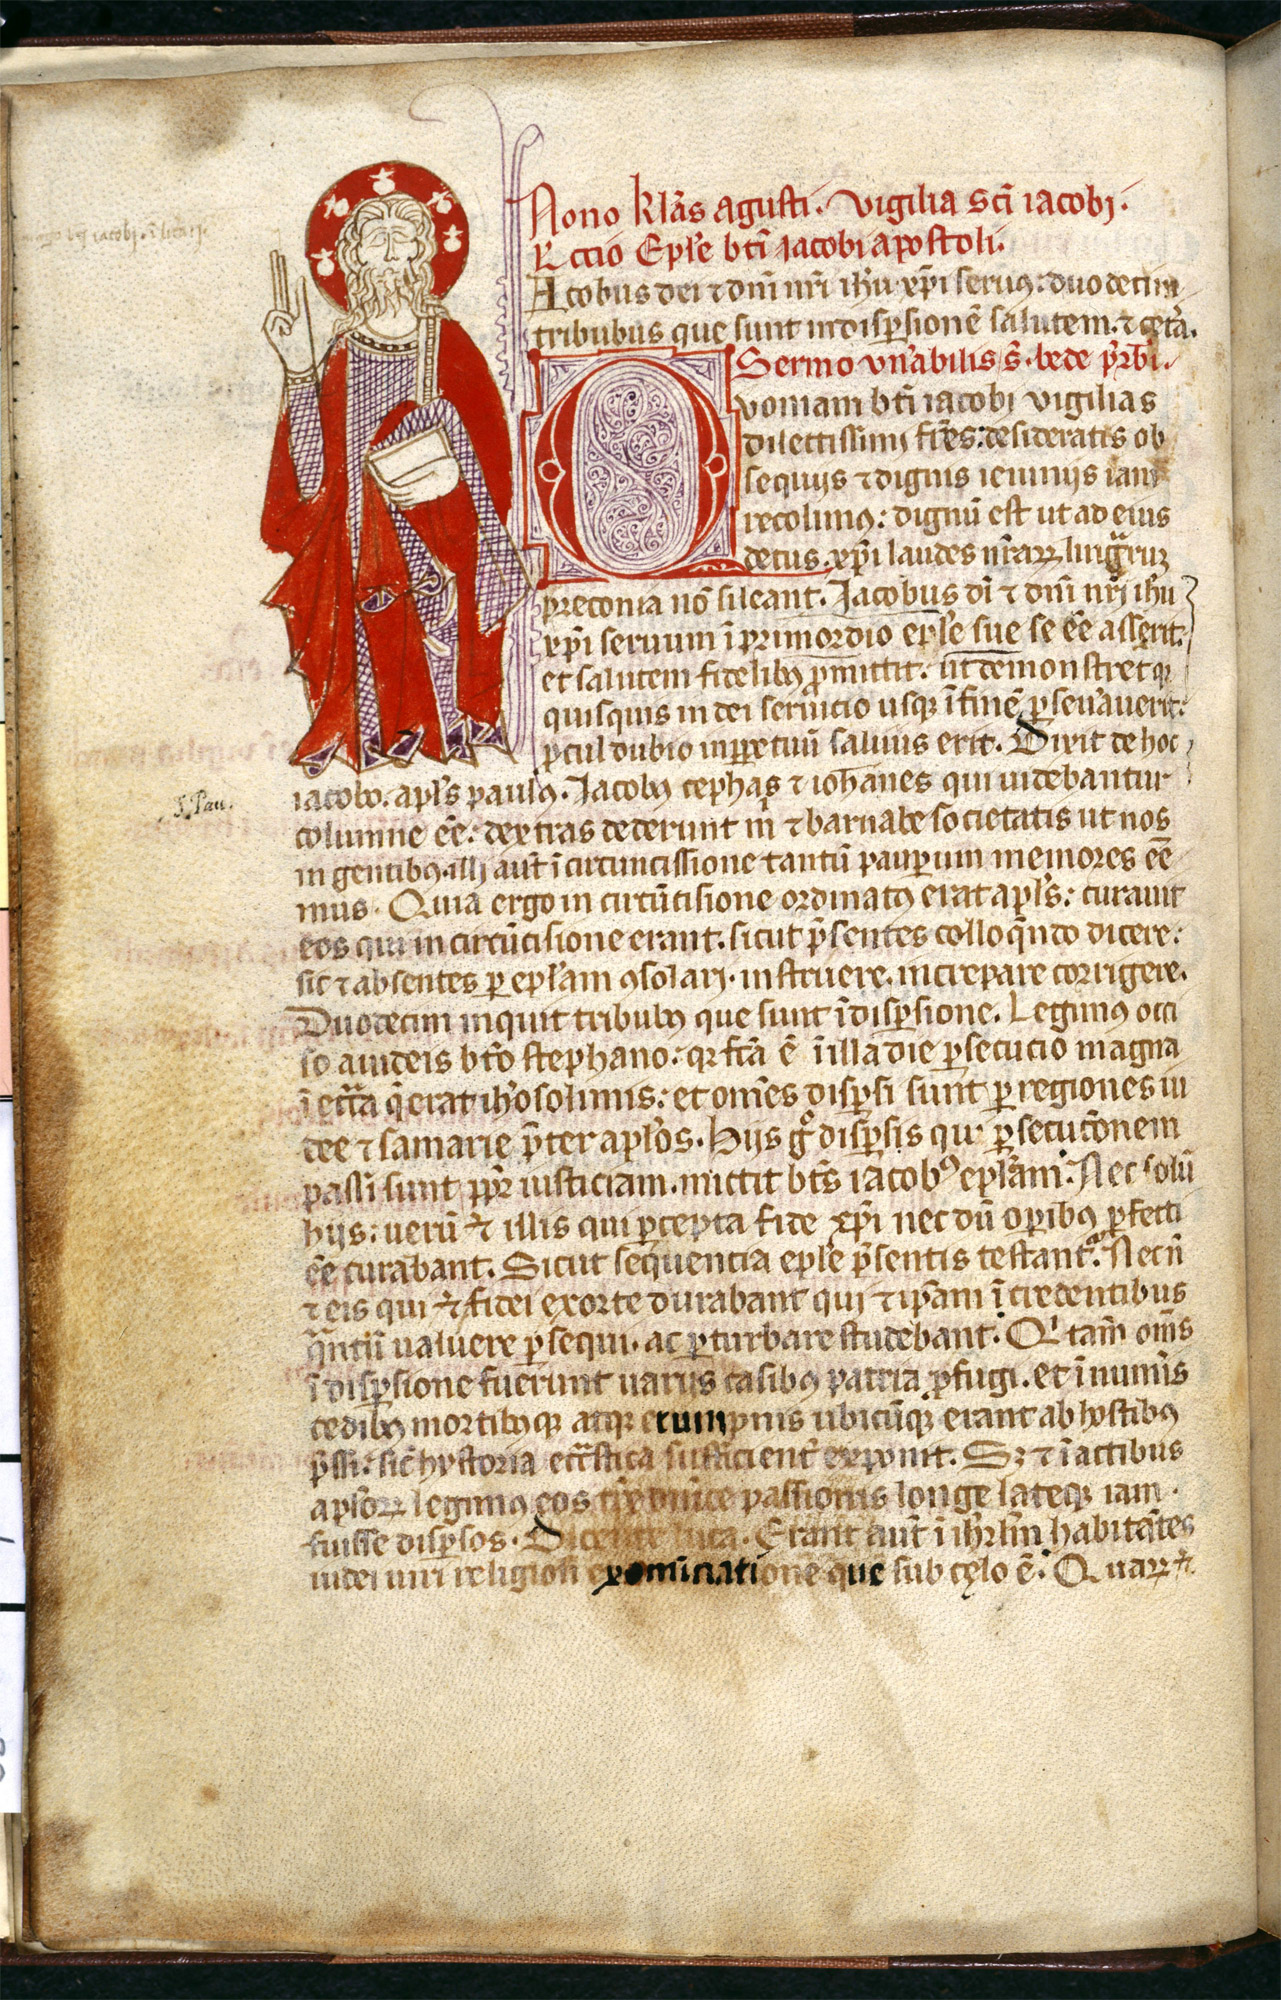 Nono klās agusti. Vigilia sc̄i iacobi.
Lectio Ep̄le bt̄i Jacobi apostoli.
Iacobus dei ⁊ dn̄i nr̄i ih̄u xp̄i seruꝯ: duodecim
tribubus que sunt in disꝑsionē salutem. ⁊ cętā.
Sermo vn̄abilis s̄. bede p̄rbi.
Quoniam bt̄i iacobi vigilias
dilectissimi fr̄es: desideratis ob
sequijs ⁊ dignis ieiunijs iam
recolimꝯ: dignū est ut ad eius
decus. xp̄i laudes nr̄arꝝ linguarꝝ
preconia nō sileant. Jacobus dī ⁊ dn̄i nr̄i ih̄u
xp̄i seruum ī primordio ep̄le sue se eē asserit:
et salutem fidelibꝯ ꝓmittit: ut demonstret qꝫ
quisquis in dei seruicio usqꝫ ī finē ꝑseuauerit:
ꝓcul dubio in ꝑpetuū saluus erit. Dixit de hoc
S. Pau.
iacobo. apl̄s paulꝯ. Jacobꝯ cephas ⁊ ioh̄anes qui uidebantur
columne eē: dextras dederunt m̄ ⁊ barnabe societatis ut nos
in gentibꝯ. illi aut̄ ī circuncissione tantū pauꝑum memores eē
mus. Quia ergo in circūcisione ordinatꝯ erat apl̄s: curauit
eos qui in circūcisione erant. sicut p̄sentes colloq̄ndo dicere:
sic ⁊ absentes ꝑ epl̄am ꝯsolari. instruere. increpare corrigere.
Duodecim inquit tribubꝯ que sunt ī disꝑsione. Legimꝯ occi
so a iudeis bt̄o stephano: qꝫ fc̄a ē ī illa die ꝑsecucio magna
ī ecc̄a q̄ erat ih̄osolimis: et om̄es disꝑsi sunt ꝑ regiones iu
dee ⁊ samarie p̄ter apl̄os. Hijs gͦ disꝑsis quⁱ ꝑsecuc̄onem
passi sunt ꝓpr̄ iusticiam. mittit bt̄s iacobꝯ epl̄am. Nec solū
hijs: uerū ⁊ illis qui ꝑcepta fide xp̄i nec dū oꝑibꝯ ꝑfecti
eē curabant. Sicut sequencia epl̄e p̄sentis testantᷣ. Necn̄
⁊ eis qui ⁊ fidei exorte durabant qui ⁊ ip̄am ī credentibus
q̄ntū ualuere ꝑsequi. ac ꝑturbare studebant. Qⁱ tam̄ om̄s
ī disꝑsione fuerunt uarijs casibꝯ patria ꝓfugi. et ī numīs
cedibꝯ mortibꝯqꝫ atqꝫ erumpnis ubicūqꝫ erant ab hostibꝯ
p̄ssi: sic̄ hystoria ecc̄stica sufficient̄ exponit. Sꝫ ⁊ ī actibus
apl̄oꝝ legimꝯ eos dn̄ice passionis longe lateqꝫ iam
fuisse disꝑsos. Dicente luca. Erant aut̄ ī ih̄rl̄m habitātes
iudei uiri religiosi ex omni natione que sub cęlo ē. Quarꝝ ⁊